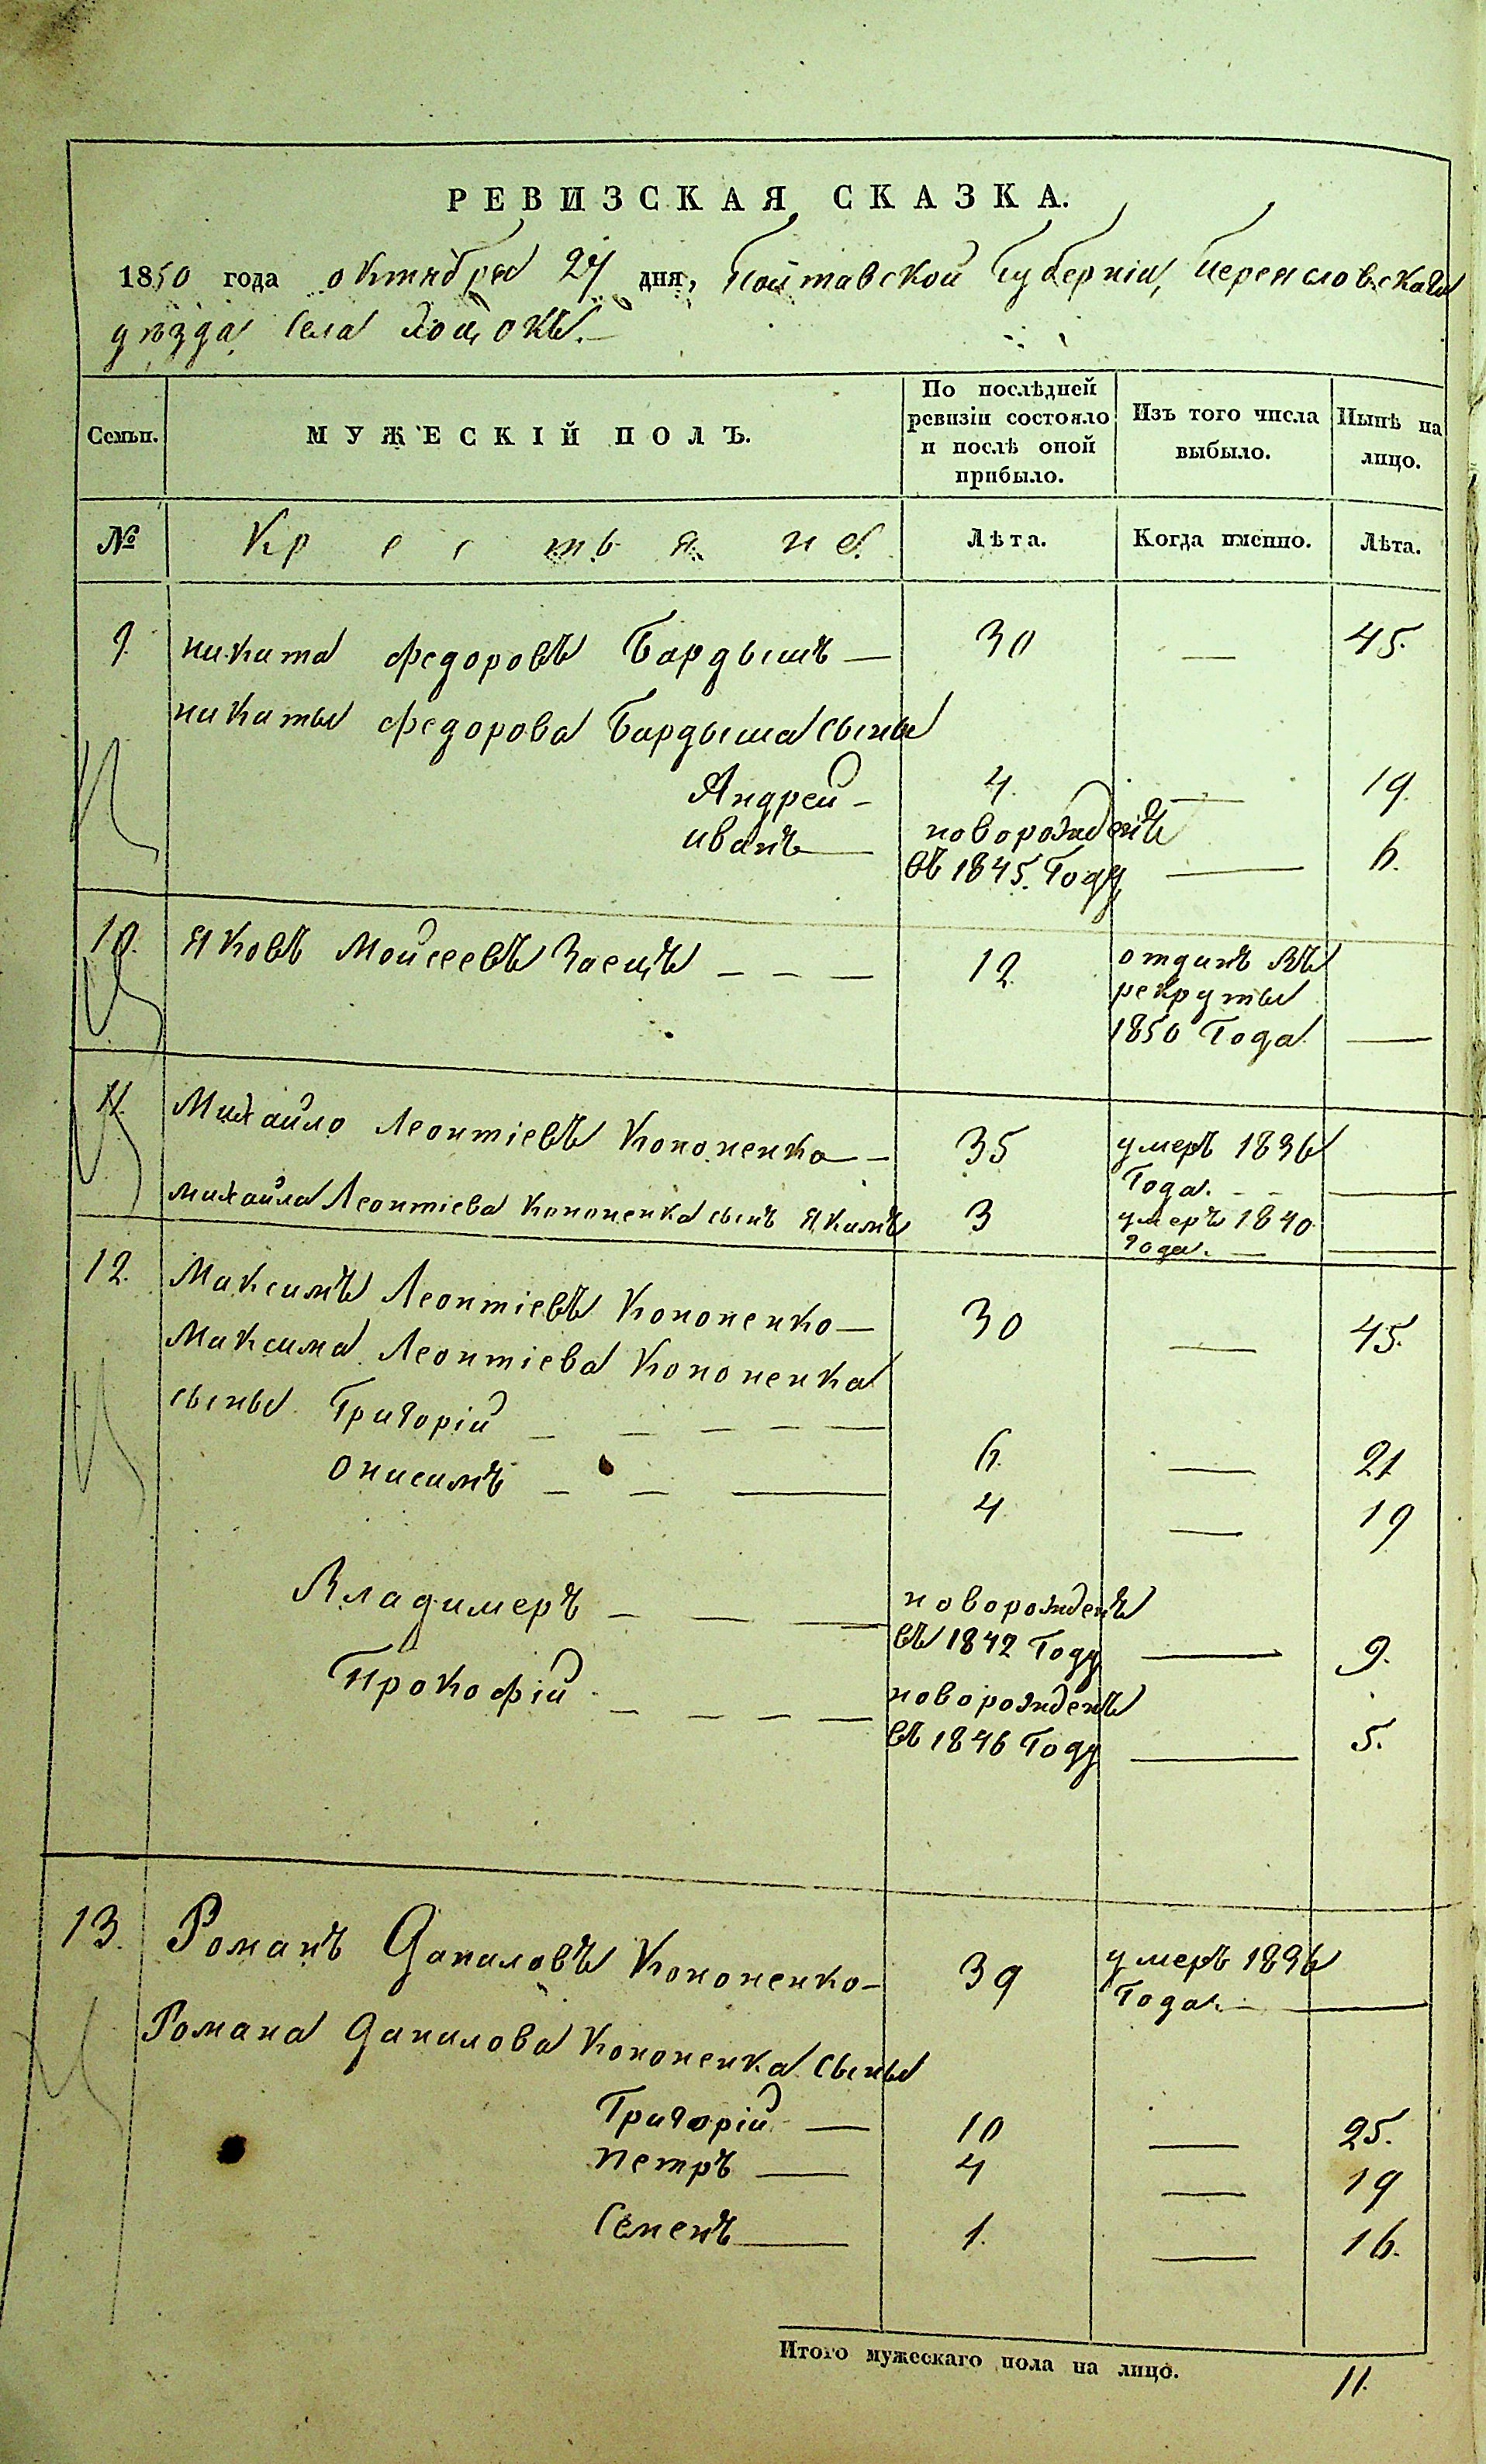 РЕВИЗСКАЯ СКАЗКА.
1850 года октября 27 дня, Полтавской Губерніи, Переясловскаго
уѣзда, Села Хоцокъ.
Семьи.
МУЖЕСКІЙ ПОЛЪ.
По послѣдней ревизіи состояло и послѣ оной прибыло.
Изъ того числа выбыло.
Нынѣ на лицо.
№
Крестьяне.
Лѣта.
Когда именно.
Лѣта.
9. никита федоровъ Бардышъ — 30 — 45.
никиты федорова Бардыша сыны
Андрей — 4. — 19.
иванъ — новорожденъ въ 1845. Году — 6.
10. Яковъ Моисеевъ Заецъ — — — 12 отданъ въ рекруты 1850 Года —
11. Михайло Леонтіевъ Кононенко — 35 умеръ 1836 Года. — —
михайла Леонтіева Кононенка сынъ Якимъ 3 умеръ 1840 года. — —
12. Максимъ Леонтіевъ Кононенко — 30 — 45.
Максима Леонтіева Кононенка
сыны Григорій — — — — — 6. — 21
онисимъ — — — 4 — 19
Владимеръ — — — новорожденъ въ 1842 Году — 9.
Прокофій — — — — новорожденъ въ 1846 Году — 5.
13. Романъ Даниловъ Кононенко — 39 умеръ 1836 Года. — —
Романа Данилова Кононенка сыны
Григорій — 10 — 25.
петръ — 4 — 19
Семенъ — 1. — 16.
Итого мужескаго пола на лицо. 11.